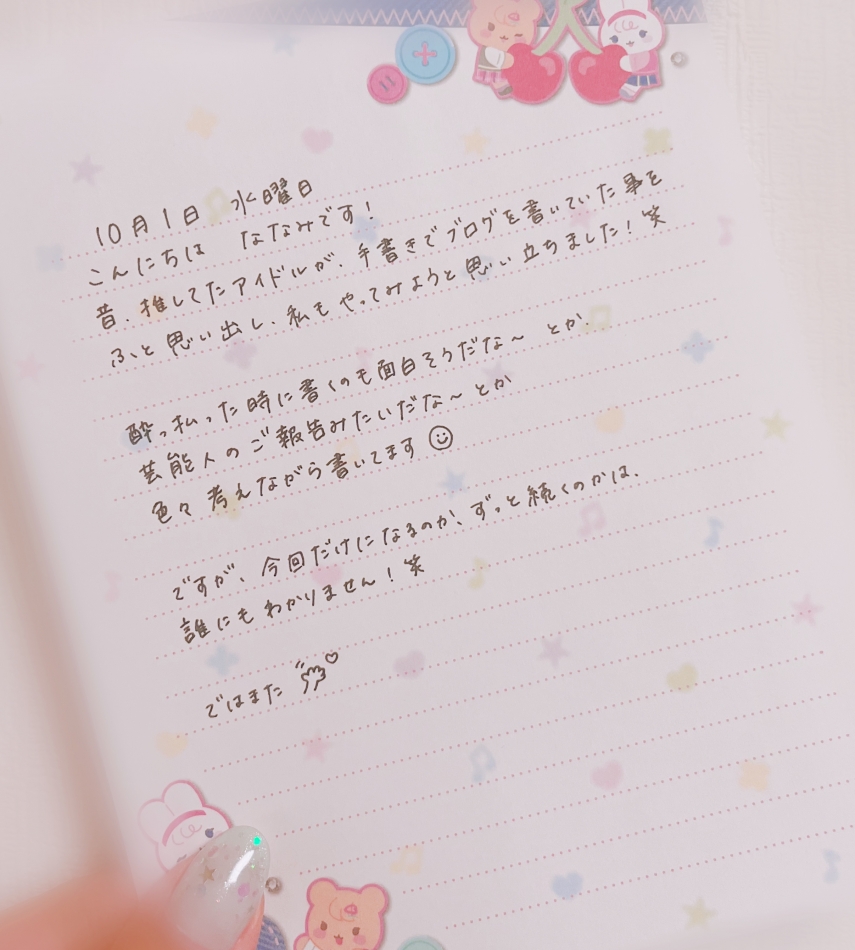 10月1日 水曜日
こんにちは ななみです！
昔、推してたアイドルが、手書きでブログを書いていた事を
ふと思い出し、私もやってみようと思い立ちました！笑
酔っ払った時に書くのも面白そうだな〜 とか
芸能人のご報告みたいだな〜 とか
色々考えながら書いてます☺
ですが、今回だけになるのか、ずっと続くのかは、
誰にもわかりません！笑
ではまた